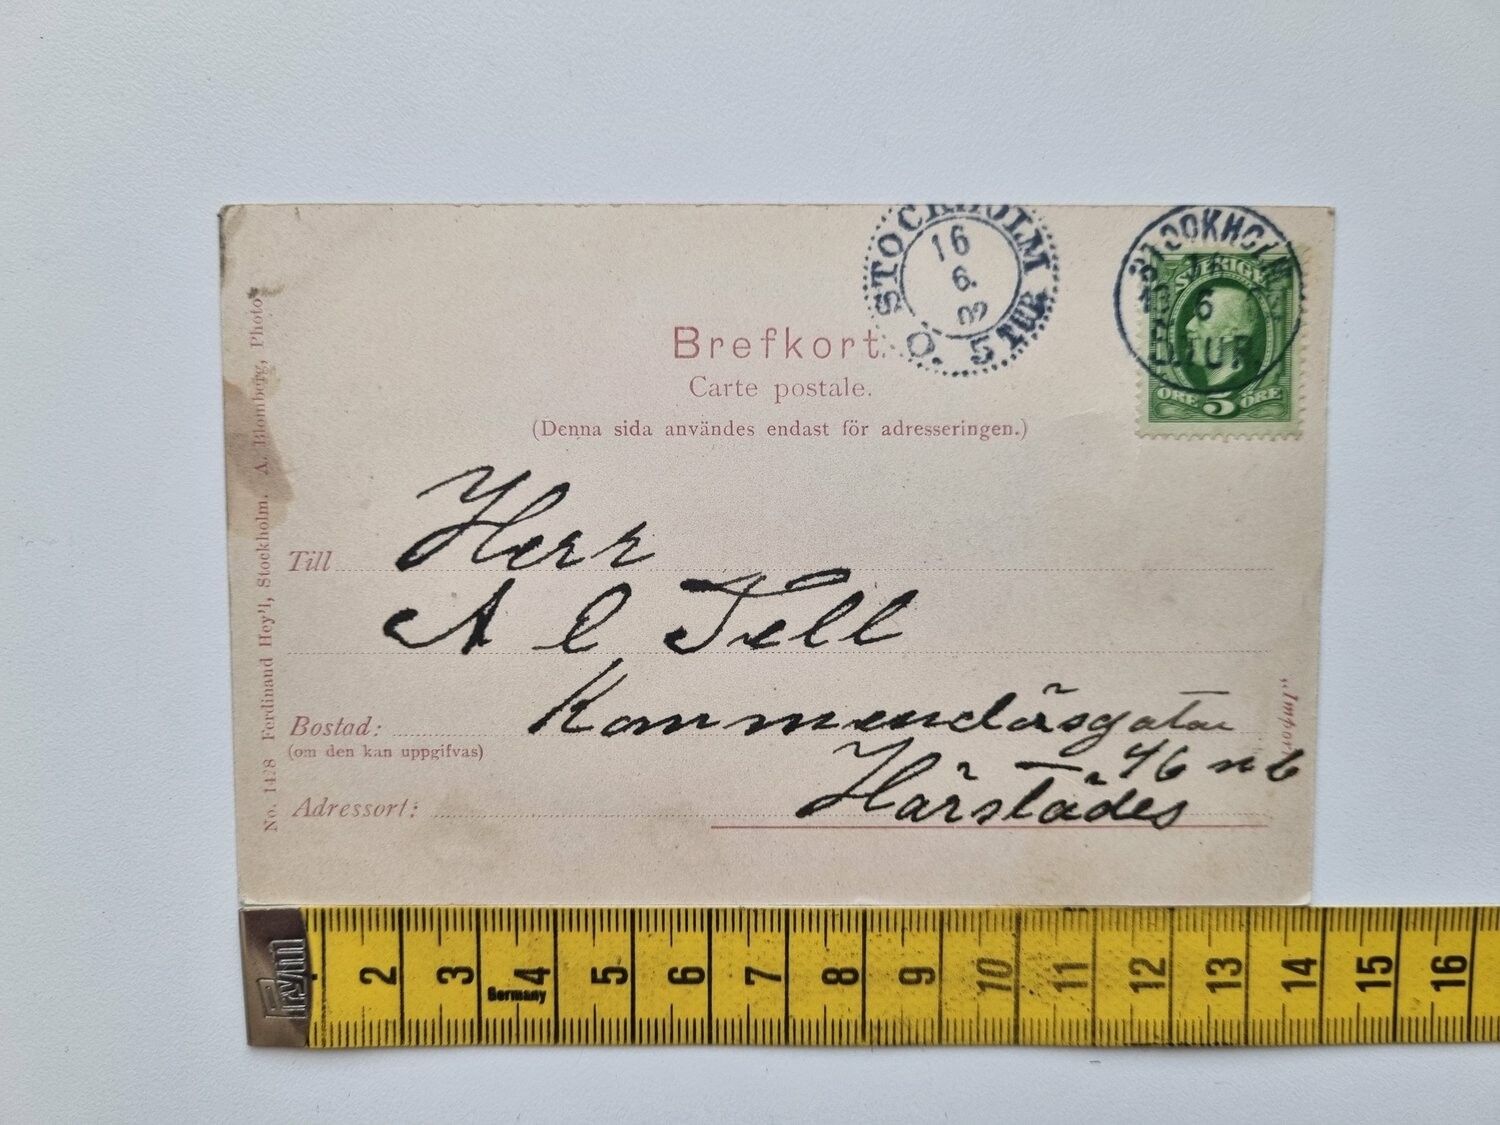 STOCKHOLM
16
6.
02
Ö. 5 TUR
STOCKHOLM
6
5 TUR
SVERIGE
ÖRE 5 ÖRE
Brefkort.
Carte postale.
(Denna sida användes endast för adresseringen.)
Till Herr
A l Tell
Bostad: Kommendörsgatan
(om den kan uppgifvas)
46 n b
Adressort: Härstädes
No. 1428 Ferdinand Hey'l, Stockholm. A. Blomberg, Photo
Prym
Germany
2 3 4 5 6 7 8 9 10 11 12 13 14 15 16